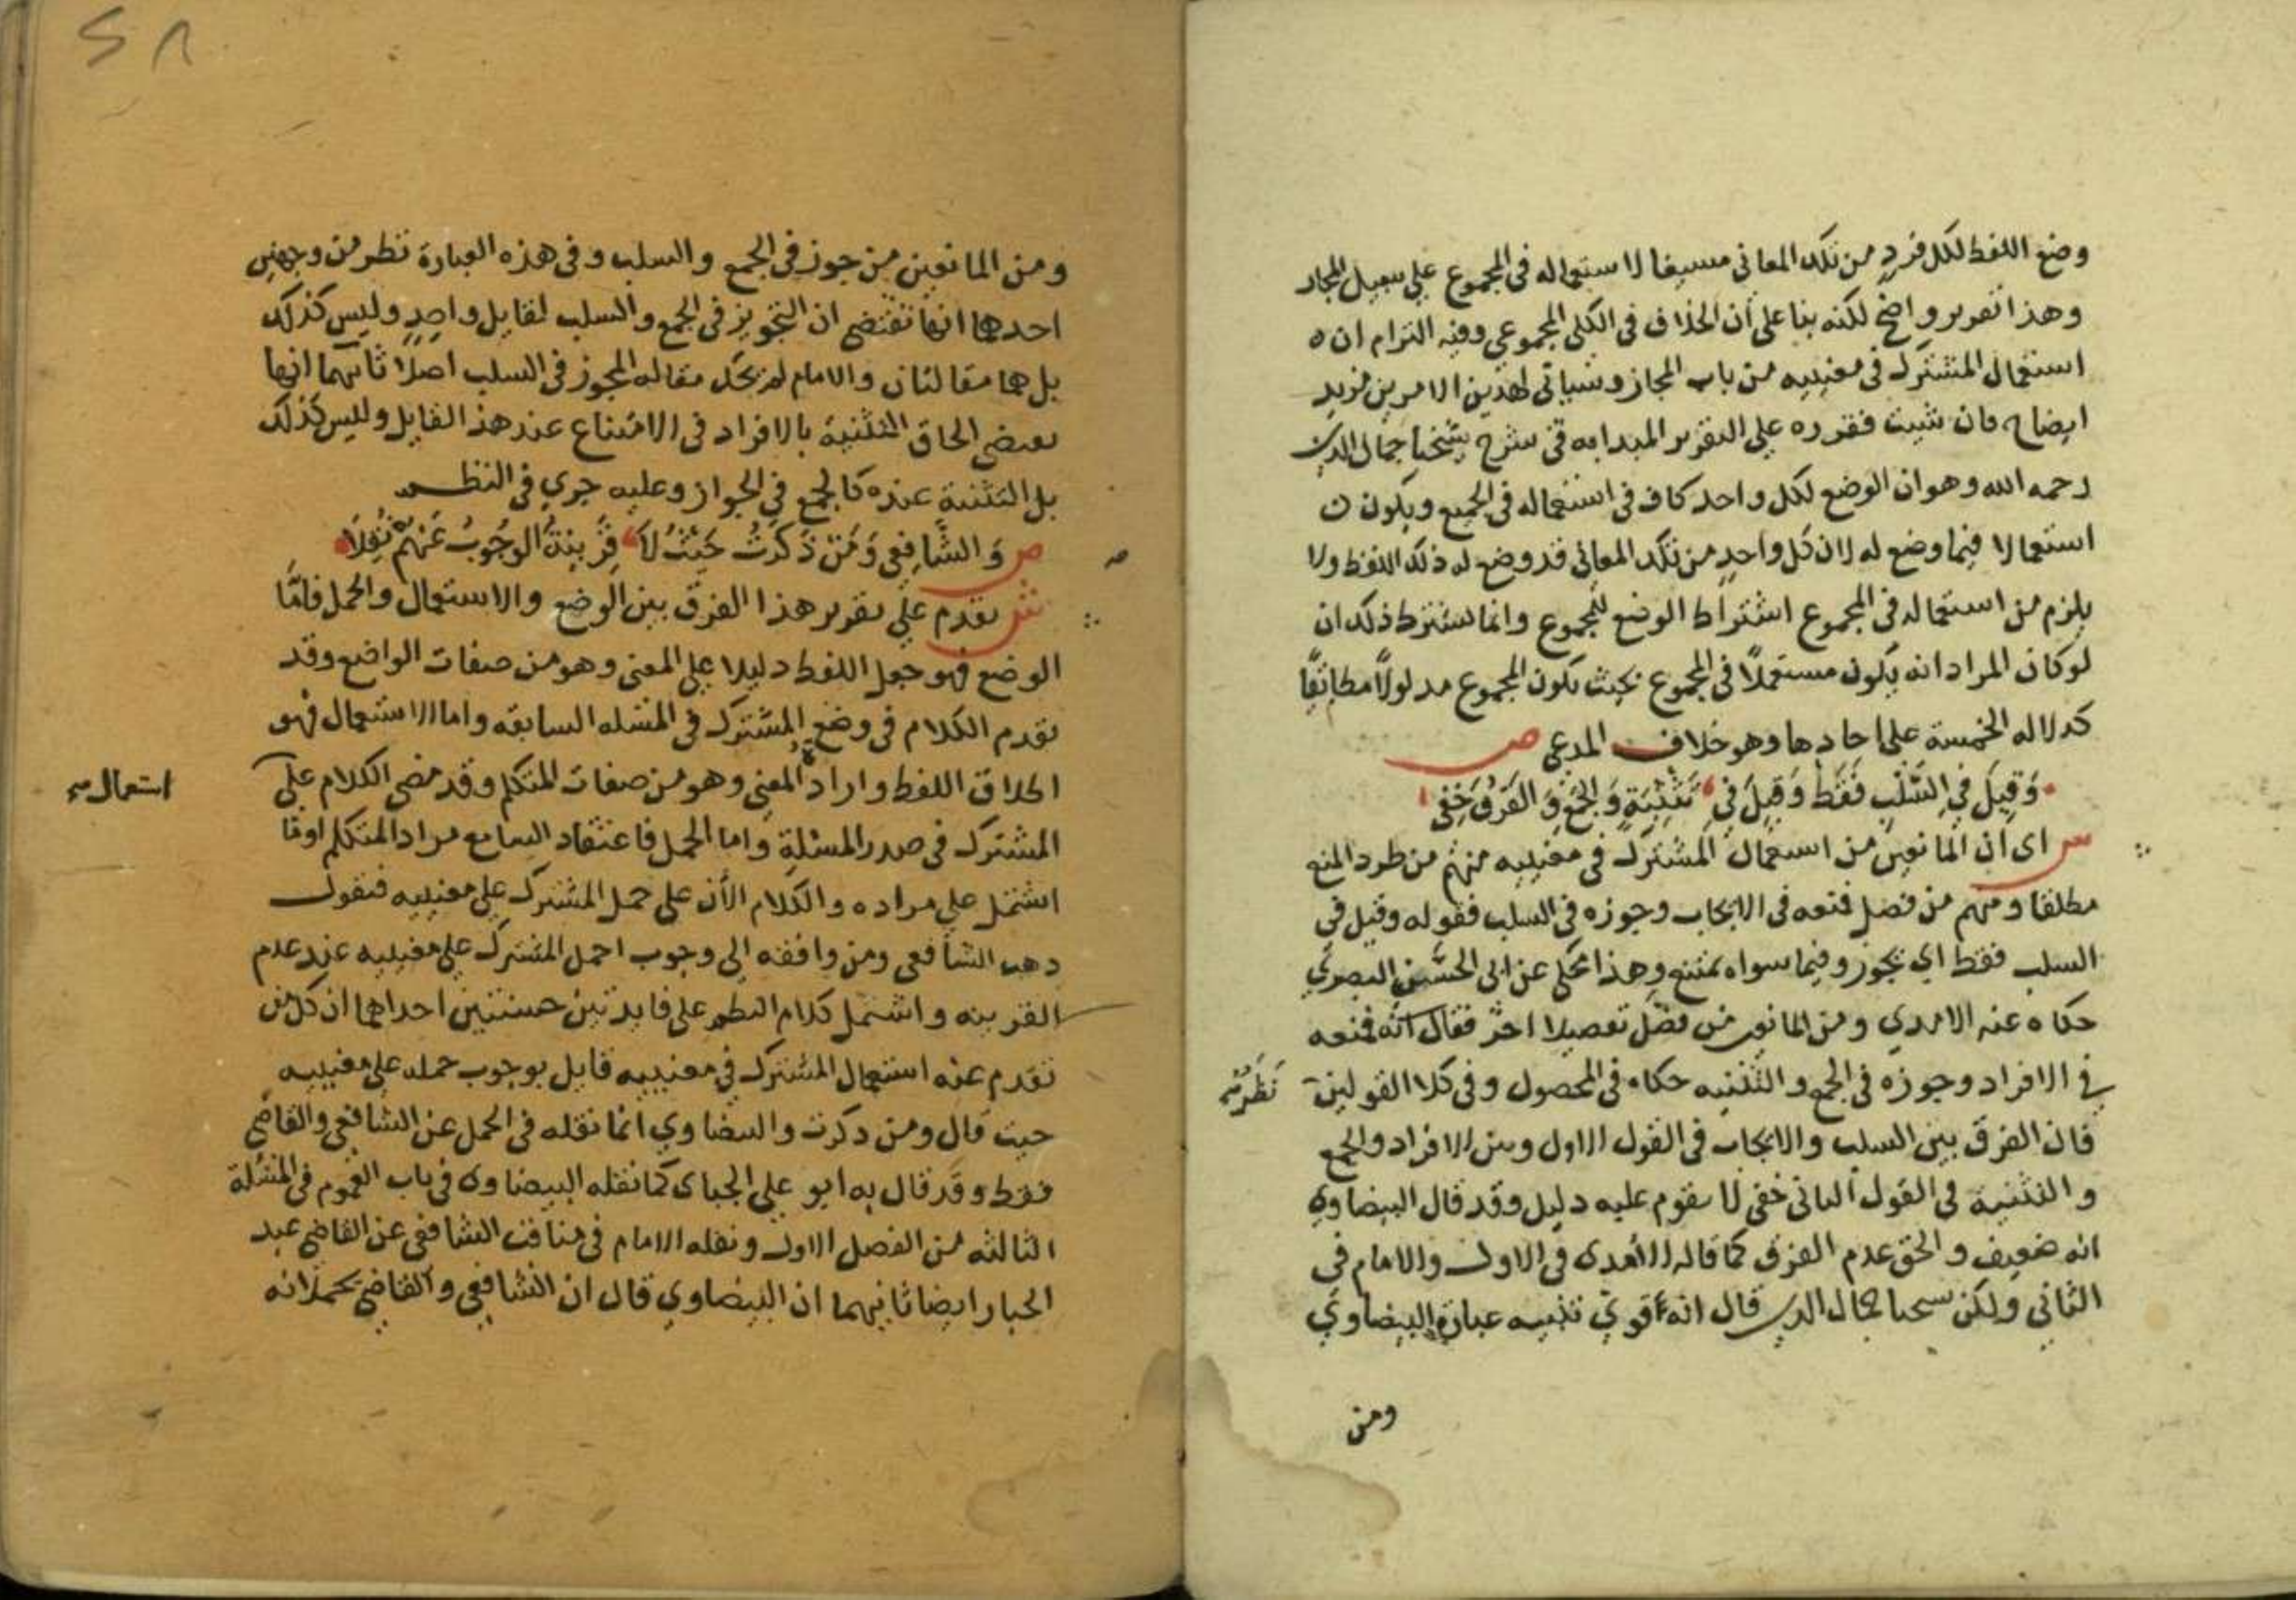 وضع اللفظ لكل فردٍ من تلك المعاني مسيغا لاستعماله في المجموع علي سبيل المجاز
وهذا تقرير واضح لكنه بنا على أن الخلاف في الكلي المجموعي وفيه التزام ان ه
استعمال المشترك في معنييه من باب المجاز وسياتي لهذين الامرين مزيد
ايضاح فان شيت فقرره علي التقرير المبدا به في شرح شيخنا جمال الدين
رحمه الله وهو ان الوضع لكل واحد كاف في استعماله في الجميع ويكون ن
استعمالا فيما وضع له لان كل واحدٍ من تلك المعاني قد وضع له ذلك اللفظ ولا
يلزم من استعماله في المجموع اشتراط الوضع للمجموع وانما يشترط ذلك ان
لو كان المراد انه يكون مستعملًا في المجموع بحيث يكون المجموع مدلولًا مطابقيًا
كدلاله الخمسة على احادها وهو خلاف المدعي ص
وَقِيلَ فِي السَّلْبِ فَقَطْ وَقِيلَ فِي تَثْنِيَةٍ وَالجَمْعِ وَالفَرْقُ خَفِي
س اى ان المانعين من استعمال المشترك في معنييه منهم من طرد المنع
مطلقا ومنهم من فصل فمنعه في الايجاب وجوزه في السلب فقوله وقيل في
السلب فقط اي يجوز وفيما سواه يمتنع وهذا محكي عن ابي الحسين البصري
حكاه عنه الامدي ومن المانعين من فصل تفصيلا اخر فقال انه فمنعه
في الافراد وجوزه في الجمع والتثنيه حكاه في المحصول وفي كلا القولين نَظَرٌ
فان الفرق بين السلب والايجاب في القول الاول وبين الافراد والجمع
والتثنية في القول الثاني خفي لا يقوم عليه دليل وقد قال البيضاوي
انه ضعيف والحق عدم الفرق كما قاله الآمدى في الاول والامام في
الثاني ولكن شيخنا جمال الدين قال انه أقوي تنبيه عبارة البيضاوي
ومن
ومن المانعين من جوز في الجمع والسلب وفي هذه العبارة نظر من وجهين
احدهما انها تقتضي ان التجويز في الجمع والسلب لقايل واحدٍ وليس كذلك
بل هما مقالتان والامام لم يحك مقاله المجوز في السلب اصلا ثانيهما انها
تعتضي الحاق التثنية بالافراد في الامتناع عند هذ القايل وليس كذلك
بل التثنية عنده كالجمع في الجواز وعليه جري في النظم
ص وَالشَّافِعِي وَمَنْ ذَكَرْتُ حَيْثُ لَا قَرِينَةُ الوُجُوبُ عَنْهُمْ نُقِلَا
ش تقدم علي تقرير هذا الفرق بين الوضع والاستعمال والحمل فامَّا
الوضع فهو جعل اللفظ دليلا علي المعني وهو من صفات الواضع وقد
تقدم الكلام في وضع المشترك في المسئله السابقه واما الاستعمال فهو
اطلاق اللفظ وارادة المعني وهو من صفات المتكلم وقد مضي الكلام علي استعمال
المشترك في صدر المسئلة واما الحمل فاعتقاد السامع مراد المتكلم اوما
اشتمل علي مراده والكلام الأن على حمل المشترك علي معنييه فنقول
ذهب الشافعي ومن وافقه الي وجوب احمل المشترك علي معنييه عند عدم
القرينه واشتمل كلام النظم على فايدتين حسنتين احداهما ان كل من
تقدم عنه استعمال المشترك في معنييه قايل بوجوب حمله علي معنييه
حيث قال ومن ذكرت والبيضاوي انما نقله في الحمل عن الشافعي والقاضي
فقط وقد قال به ابو علي الجباى كما نقله البيضاوى في باب العموم في المسئلة
الثالثه من الفصل الاول ونقله الامام في مناقب الشافعي عن القاضي عبد
الجبار ايضا ثانيهما ان البيضاوي قال ان الشافعي والقاضي يحملانه